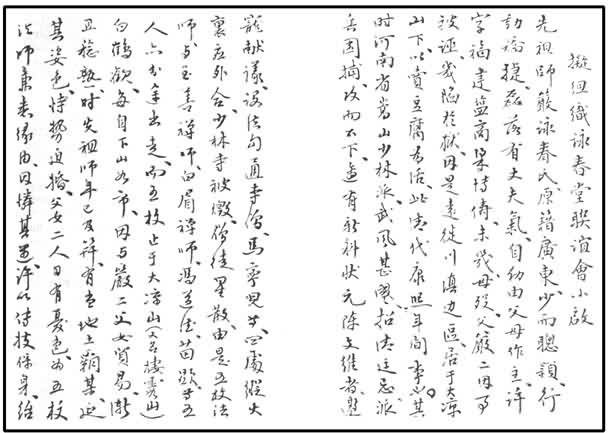 擬組織詠春堂聯誼會小啟
先祖師嚴詠春氏原籍廣東少而聰穎行
動矯捷磊落有丈夫氣自幼由父母作主許
字福建鹽商梁博儔未幾母歿父嚴二因事
被誣幾陷於獄因是遠徙川滇边區居于大凉
山下以賣豆腐為活此清代康熙年間事也其
時河南省嵩山少林派武風甚盛招清廷忌派
兵圍捕攻而不下適有新科狀元陳文維者邀
寵獻議設法勾通寺僧馬寧兒等四處縱火
裏应外合少林寺被燬僧徒星散由是五枚法
師与至善禪師白眉禪師馮道德苗顯等五
人亦分途出走而五枚止于大凉山(又名棲霞山)
白鶴観每自下山為市因与嚴二父女貿易漸
且稔熟時先祖師年已及笄有當地土霸某見
其姿色恃勢迫婚父女二人日有憂色為五枚
法師稟悉緣由因憐其遇許以傳技保身給